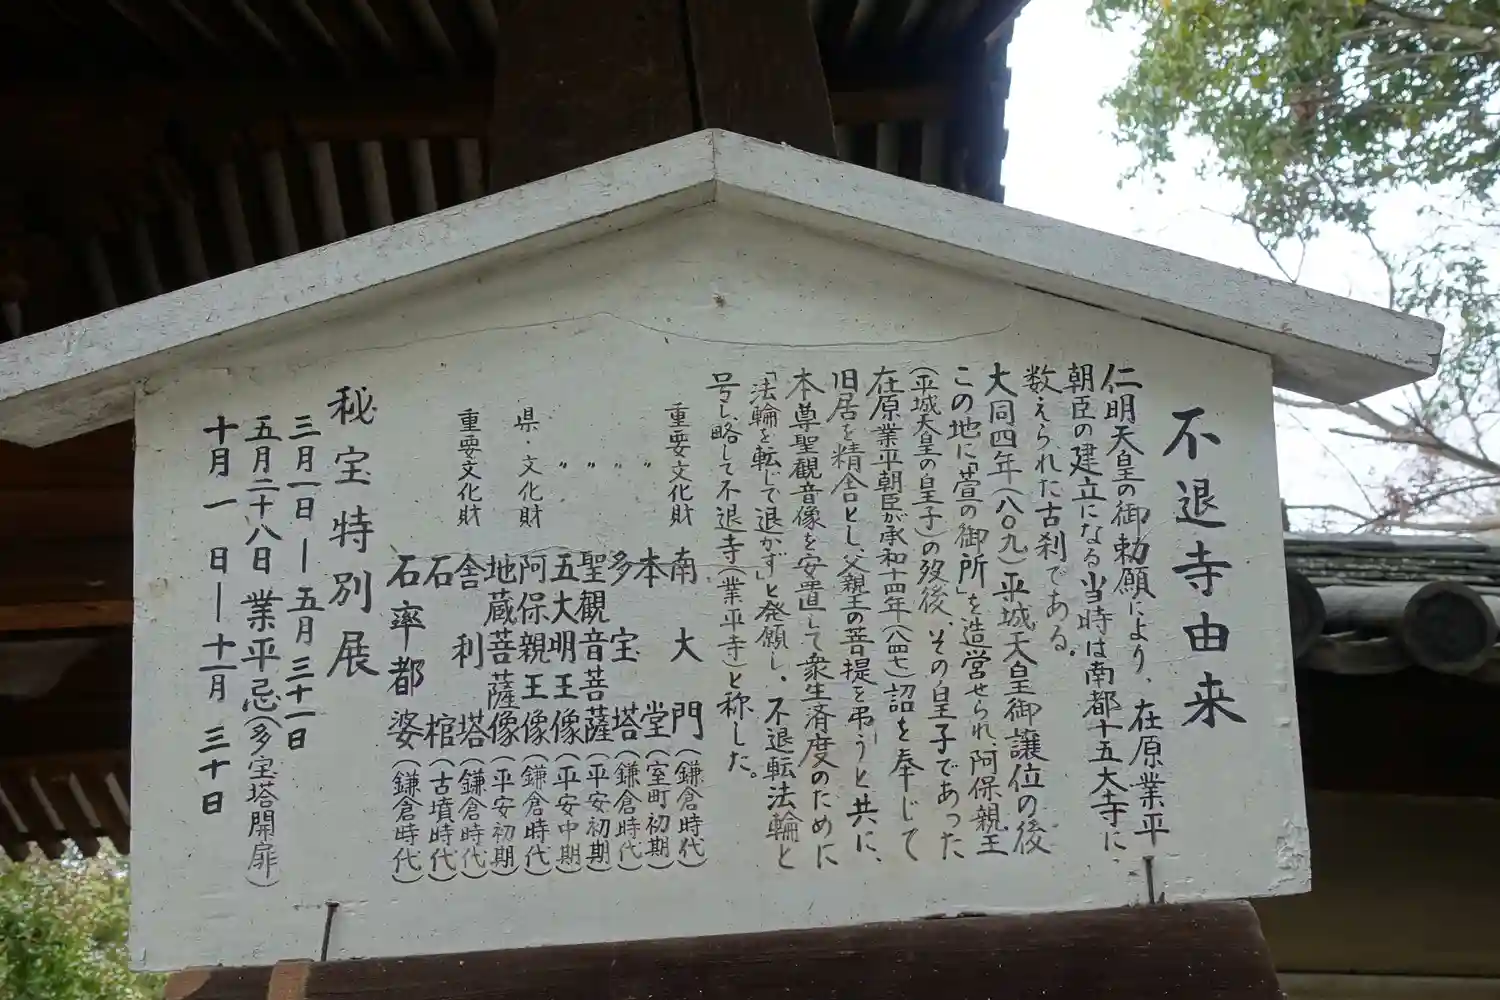 不退寺由来
仁明天皇の御勅願により、在原業平
朝臣の建立になる当時は南都十五大寺に、
数えられた古刹である。
大同四年(八〇九)平城天皇御譲位の後
この地に「萱の御所」を造営せられ、阿保親王
(平城天皇の皇子)の歿後、その皇子であった
在原業平朝臣が承和十四年(八四七)詔を奉じて
旧居を精舎とし、父親王の菩提を弔うと共に、
本尊聖観音像を安置して衆生済度のために
「法輪を転じて退かず」と発願し、不退転法輪と
号し、略して不退寺(業平寺)と称した。
重要文化財 南大門(鎌倉時代)
〃 本堂(室町初期)
〃 多宝塔(鎌倉時代)
〃 聖観音菩薩(平安初期)
〃 五大明王像(平安中期)
県・文化財 阿保親王像(鎌倉時代)
地蔵菩薩像(平安初期)
重要文化財 舎利塔(鎌倉時代)
石棺(古墳時代)
石率都婆(鎌倉時代)
秘宝特別展
三月一日―五月三十一日
五月二十八日業平忌(多宝塔開扉)
十月一日―十一月三十日